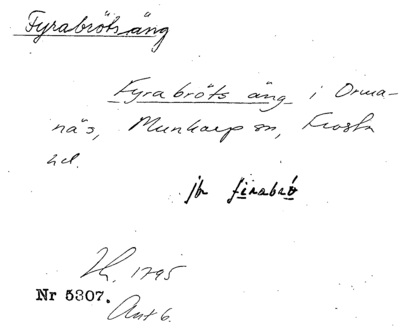 Fyrabrötsäng
Fyrabröts äng i Orma-
näs, Munkarp sn, Frosta
hd.
jfr firabrö
Lh. 1795
Nr 5307.
Ant 6.